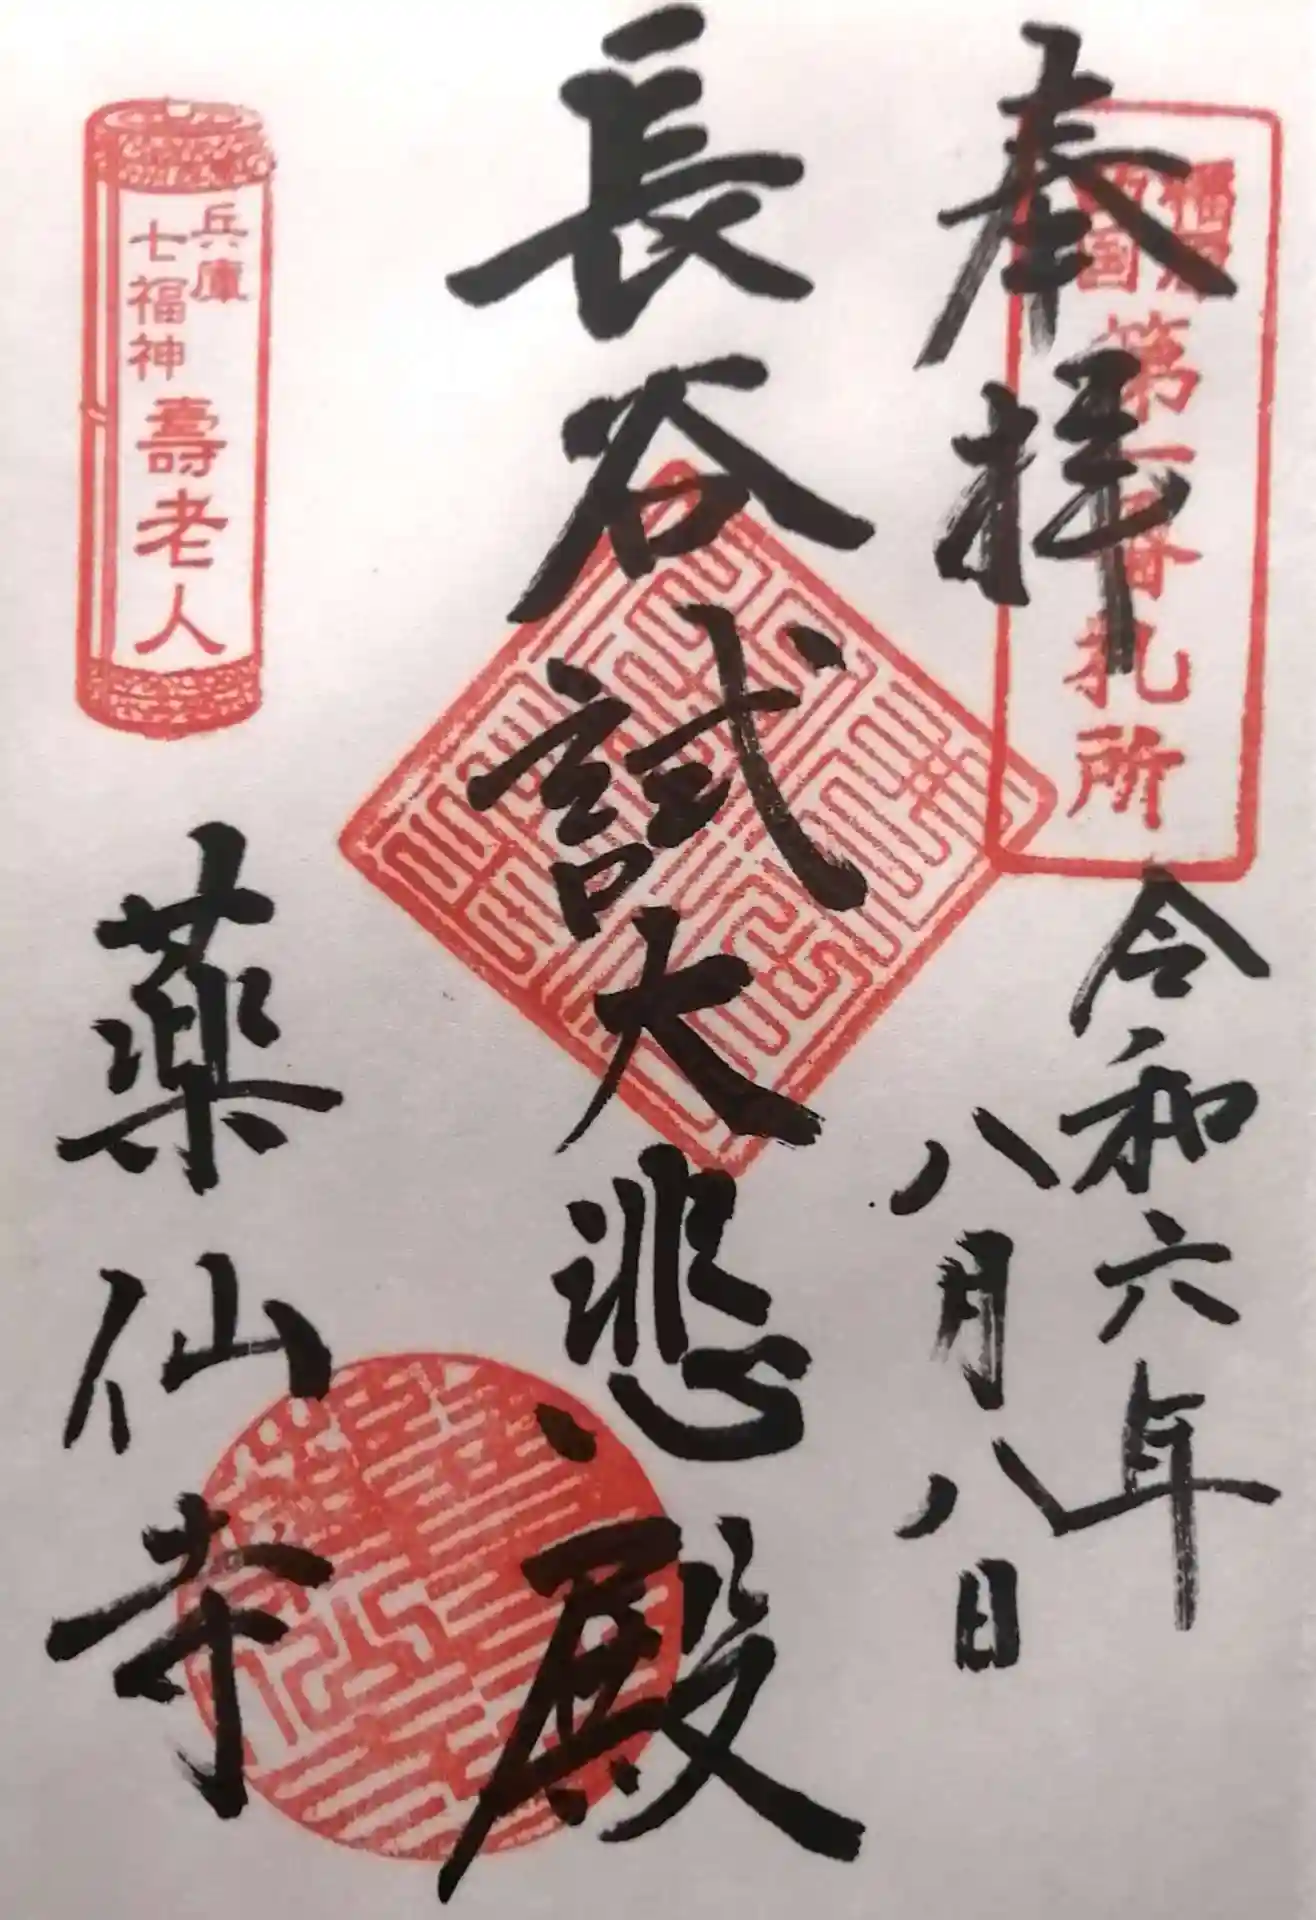 奉拝
福原
西国
第一番札所
令和六年
八月八日
長谷試大悲殿
兵庫
七福神
壽老人
薬仙寺